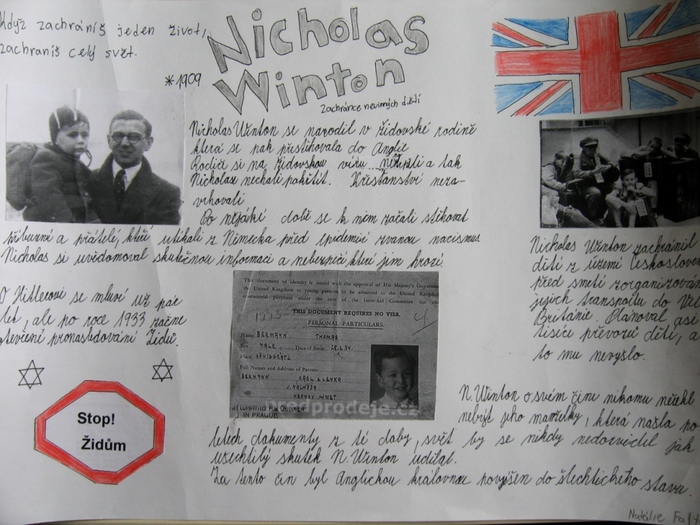 Když zachráníš jeden život,
zachráníš celý svět.
Nicholas
Winton
*1909
Zachránce nevinných dětí
Nicholas Winton se narodil v židovské rodině
která se pak přestěhovala do Anglie
Rodiče si na židovskou víru a tak
Nicholase nechali pokřtít. Křesťanství
Po nějaké době se k němu začali
příbuzní a přátelé, kteří utíkali z Německa před epidemií zvanou nacismus
Nicholas si uvědomoval skutečnou informaci a nebezpečí které jim hrozí
O Hitlerovi se mluví už pár
let, ale po roce 1933 začne
pronásledování Židů.
Stop!
Židům
This document of identity is issued with the approval of His Majesty's Government
the United Kingdom to young persons to be admitted to the United Kingdom
THIS DOCUMENT REQUIRES NO VISA.
PERSONAL PARTICULARS.
Name BERMANN THOMAS
Sex MALE Date of Birth
Place
Full Names and Address of Parents
BERMANN KAREL & LENKA
IN PRAGUE
predprodeje.cz
Nicholas Winton zachránil
děti z území Československa
před smrtí
jejich transportu do Vel
Británie. Plánoval asi
tisíce převozů dětí, a
to mu nevyšlo.
N. Winton o svém činu nikomu neřekl
nebýt jeho manželky, která našla po
letech dokumenty z té doby, svět by se nikdy nedozvěděl jak
ušlechtilý skutek N. Winton udělal.
Za tento čin byl Anglickou královnou povýšen do šlechtického stavu.
Natálie